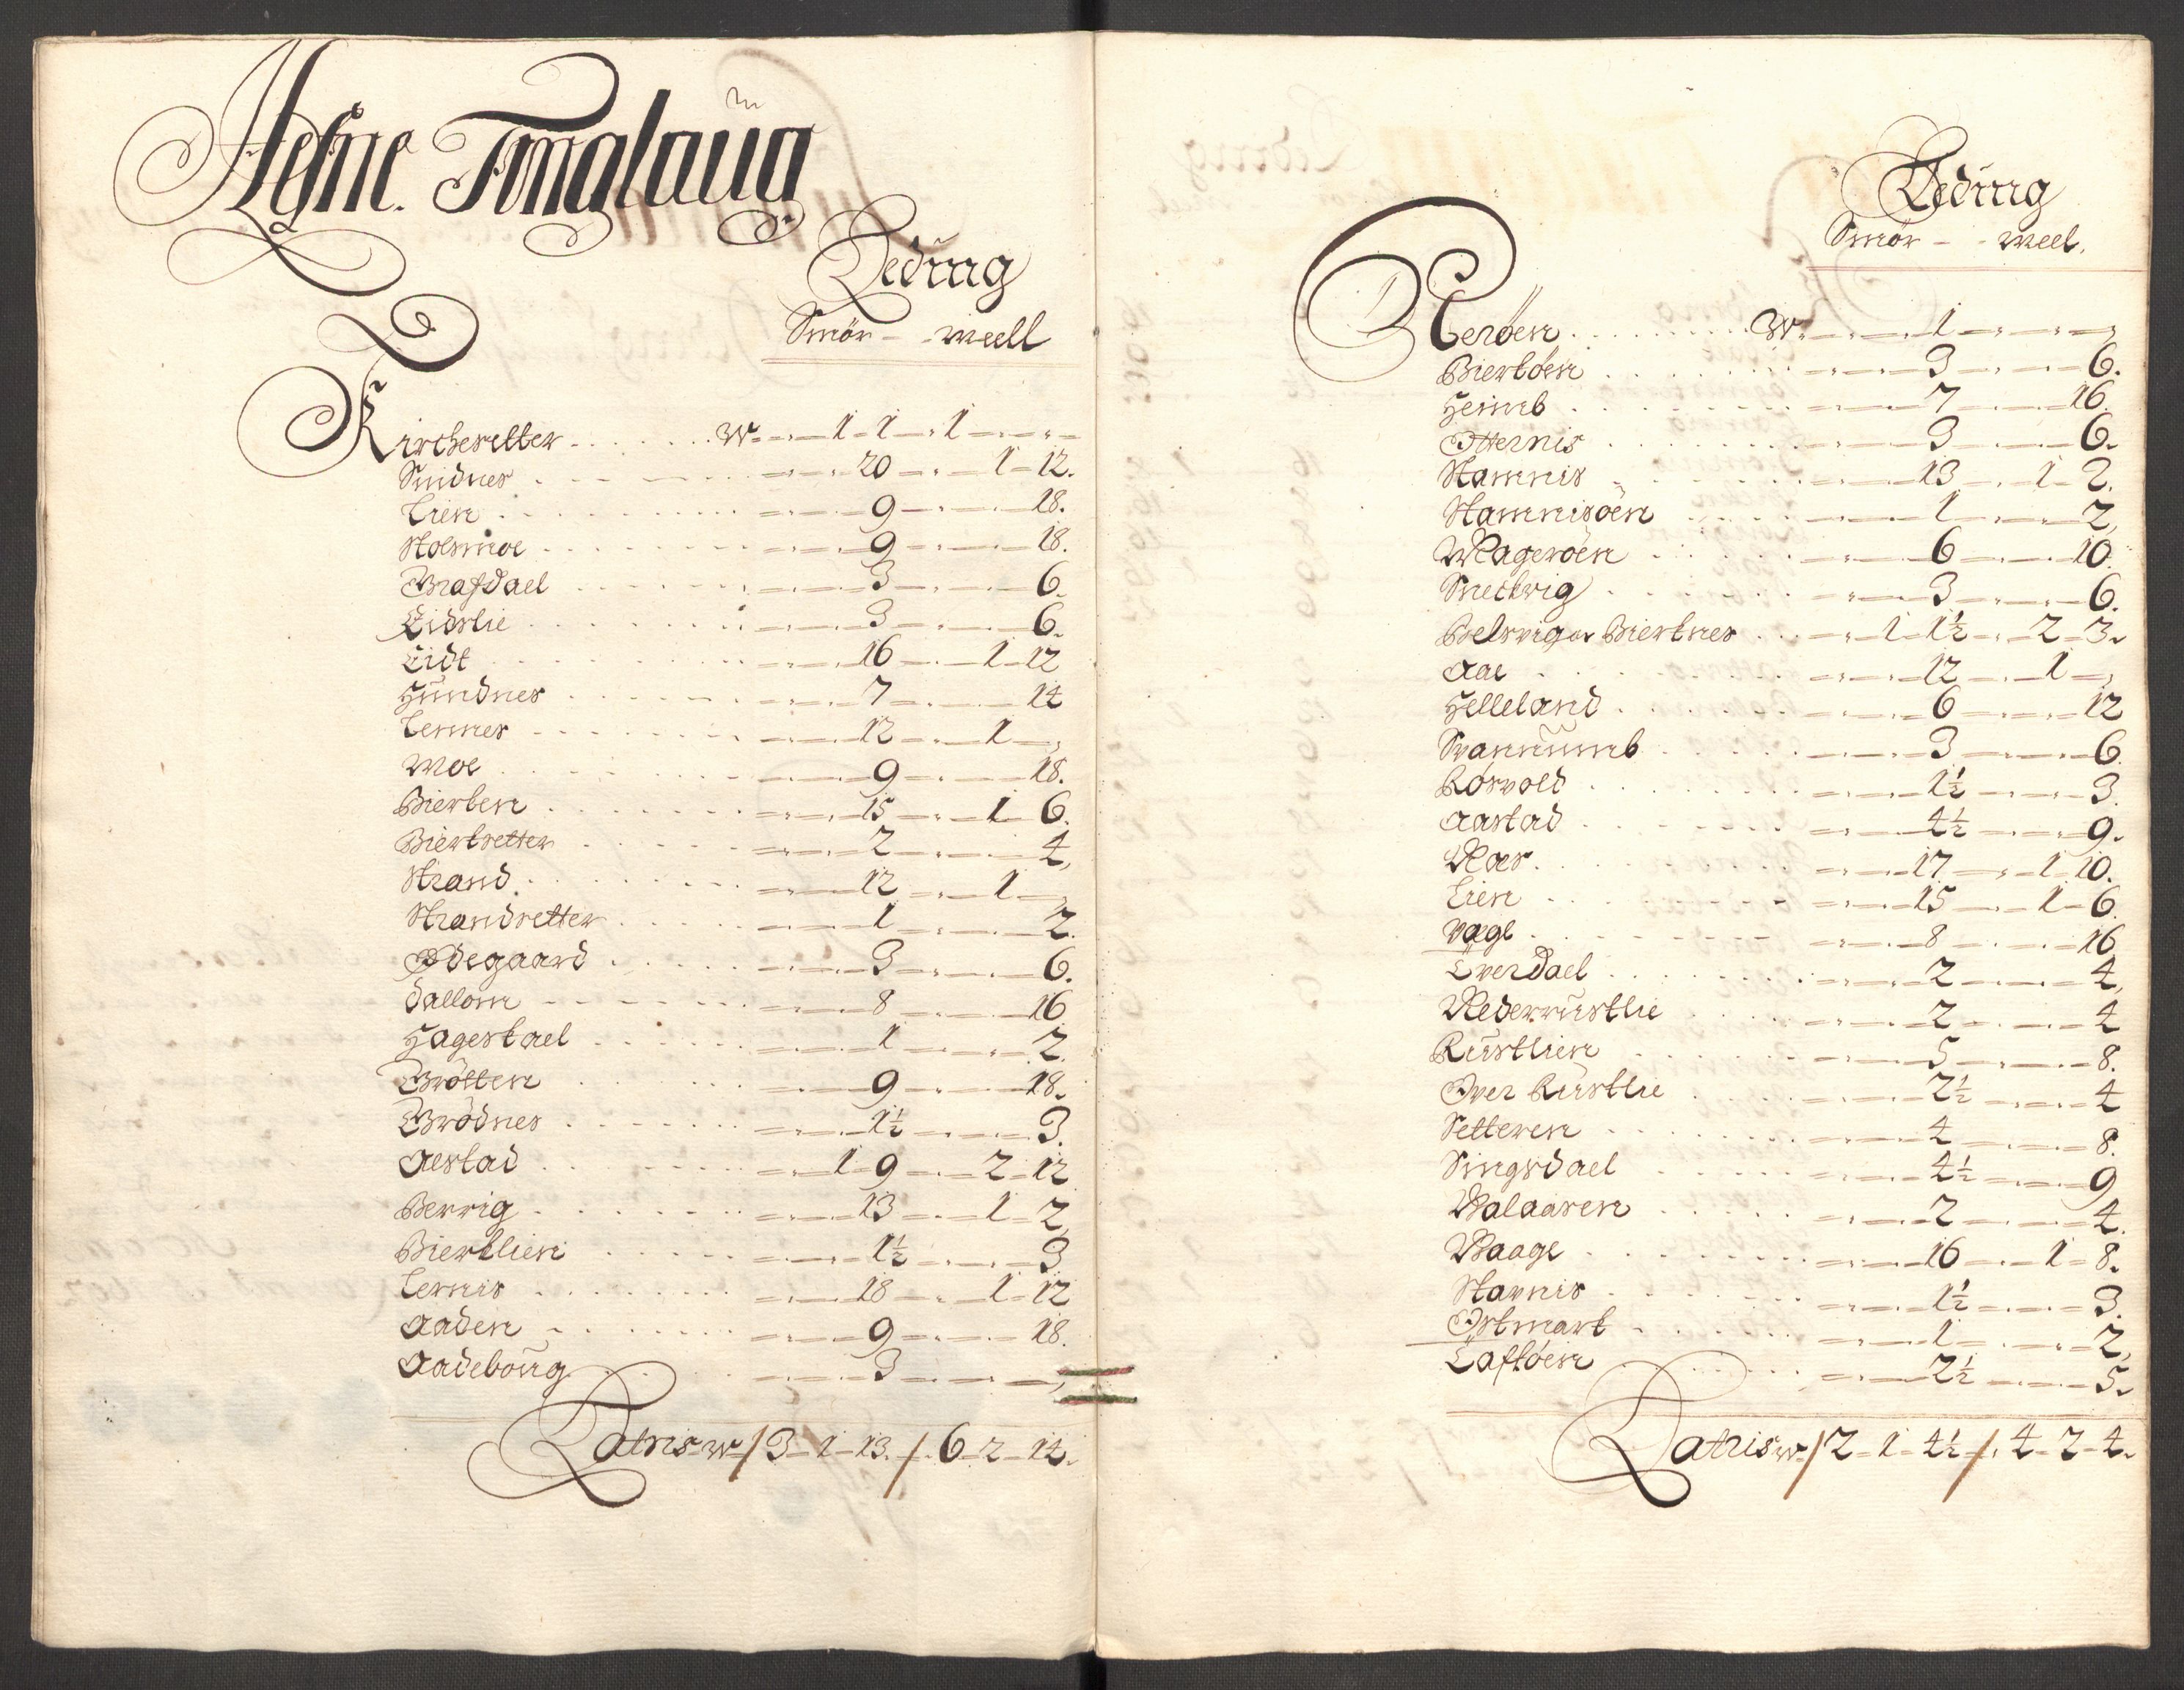 Hefne Tinglaug
Leding
Smör - - Meell
Kirchesetter . . . . . . W - - 1 - 1 - 1 - - -
Snidnes . . . 20 - 1 - 12.
Lien . . . 9 - 18.
Stolsmoe . . . 9 - 18.
Grafdael . . . 3 - 6.
Lidslie . . . 3 - 6.
Eidt . . . 16 - 1 - 12
Hundnes . . . 7 - 14
Lennes . . . 12 - 1 -
Moe . . . 9 - 18.
Bierken . . . 15 - 1 - 6.
Biertsetter . . . 2 - 4,
Strand . . . 12 - 1 -
Strandsetter . . . 1 - 2.
Ödegaard . . . 3 - 6.
Dallom . . . 8 - 16
Hagestael . . . 1 - 2.
Brötten . . . 9 - 18.
Grödnes . . . 1½ - 3.
Aestad . . . 1 - 9 - 2 - 12
Bervig . . . 13 - 1 - 2,
Bierklien . . . 1½ - 3
Lernis . . . 18 - 1 - 12
Aaden . . . 9 - 18.
Aadeboug . . . 3 - - -
Latris W / 3 - 1 - 13. / 6 - 2 - 14.
Leding
Smör - - Meel.
Teröen . . . W - - 1 - - -
Biertöen . . . 3 - 6.
Heimb . . . 7 - 16.
Otternis . . . 3 - 6.
Stamnis . . . 13 - 1 - 2.
Stamnisöen . . . 1 - 2,
Mageröen . . . 6 - 10.
Snechvig . . . 3 - 6.
Belsvig os Biertnes . . . 1 - 1½ - 2 - 3.
Aae . . . 12 - 1 -
Helleland . . . 6 - 12
Svanumb . . . 3 - 6.
Rosvold . . . 1½ - 3.
Aastad . . . 4½ - 9.
Næs . . . 17 - 1 - 10.
Lien . . . 15 - 1 - 6.
Vagl . . . 8 - 16
Överdael . . . 2 - 4,
Nederrustlie . . . 2 - 4
Rustlien . . . 5 - 8.
Over Rustlie . . . 2½ - 4
Setteren . . . 4 - 8.
Singsdael . . . 4½ - 9
Walaaren . . . 2 - 4.
Waage . . . 16 - 1 - 8.
Stavnis . . . 1½ - 3.
Ostmark . . . 1 - 2,
Laftöen . . . 2½ - 5.
Latris W / 2 - 1 - 4½ / 4 - 2 - 4.